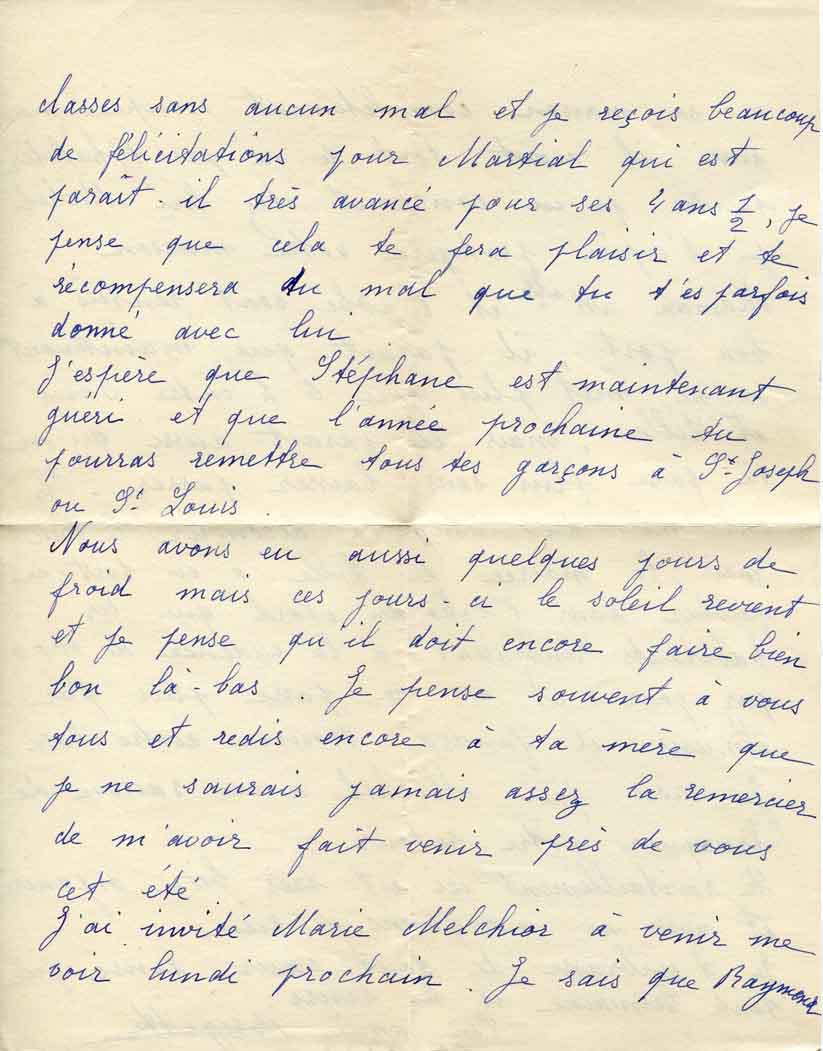 classes sans aucun mal et je reçois beaucoup
de félicitations pour Martial qui est
paraît-il très avancé pour ses 4 ans 1/2, je
pense que cela te fera plaisir et te
récompensera du mal que tu t'es parfois
donné avec lui
J'espère que Stéphane est maintenant
guéri et que l'année prochaine tu
pourras remettre tous tes garçons à St Joseph
ou St Louis.
Nous avons eu aussi quelques jours de
froid mais ces jours-ci le soleil revient
et je pense qu'il doit encore faire bien
bon là-bas. Je pense souvent à vous
tous et redis encore à ta mère que
je ne saurais jamais assez la remercier
de m'avoir fait venir près de vous
cet été
J'ai invité Marie Melchior à venir me
voir lundi prochain. Je sais que Raymond